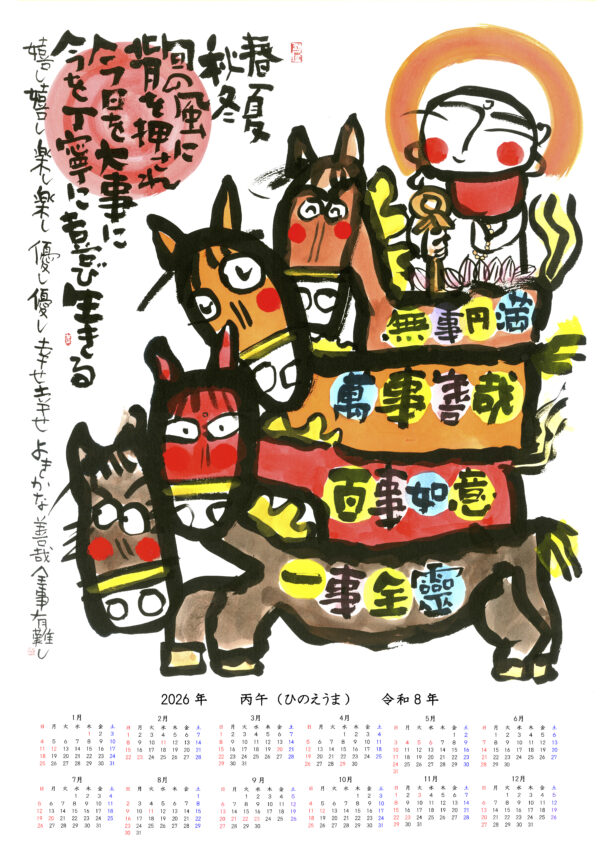 春夏
秋冬
旬の風に
背を押され
今日を大事に
今を丁寧に喜び生きる
嬉し嬉し楽し楽し優し優し幸せ幸せよきかな善哉全事有難し
無事円満
萬事善哉
百事如意
一事全靈
2026年 丙午(ひのえうま) 令和8年
1月
日 月 火 水 木 金 土
1 2 3
4 5 6 7 8 9 10
11 12 13 14 15 16 17
18 19 20 21 22 23 24
25 26 27 28 29 30 31
2月
日 月 火 水 木 金 土
1 2 3 4 5 6 7
8 9 10 11 12 13 14
15 16 17 18 19 20 21
22 23 24 25 26 27 28
3月
日 月 火 水 木 金 土
1 2 3 4 5 6 7
8 9 10 11 12 13 14
15 16 17 18 19 20 21
22 23 24 25 26 27 28
29 30 31
4月
日 月 火 水 木 金 土
1 2 3 4
5 6 7 8 9 10 11
12 13 14 15 16 17 18
19 20 21 22 23 24 25
26 27 28 29 30
5月
日 月 火 水 木 金 土
1 2
3 4 5 6 7 8 9
10 11 12 13 14 15 16
17 18 19 20 21 22 23
24 25 26 27 28 29 30
31
6月
日 月 火 水 木 金 土
1 2 3 4 5 6
7 8 9 10 11 12 13
14 15 16 17 18 19 20
21 22 23 24 25 26 27
28 29 30
7月
日 月 火 水 木 金 土
1 2 3 4
5 6 7 8 9 10 11
12 13 14 15 16 17 18
19 20 21 22 23 24 25
26 27 28 29 30 31
8月
日 月 火 水 木 金 土
1
2 3 4 5 6 7 8
9 10 11 12 13 14 15
16 17 18 19 20 21 22
23 24 25 26 27 28 29
30 31
9月
日 月 火 水 木 金 土
1 2 3 4 5
6 7 8 9 10 11 12
13 14 15 16 17 18 19
20 21 22 23 24 25 26
27 28 29 30
10月
日 月 火 水 木 金 土
1 2 3
4 5 6 7 8 9 10
11 12 13 14 15 16 17
18 19 20 21 22 23 24
25 26 27 28 29 30 31
11月
日 月 火 水 木 金 土
1 2 3 4 5 6 7
8 9 10 11 12 13 14
15 16 17 18 19 20 21
22 23 24 25 26 27 28
29 30
12月
日 月 火 水 木 金 土
1 2 3 4 5
6 7 8 9 10 11 12
13 14 15 16 17 18 19
20 21 22 23 24 25 26
27 28 29 30 31